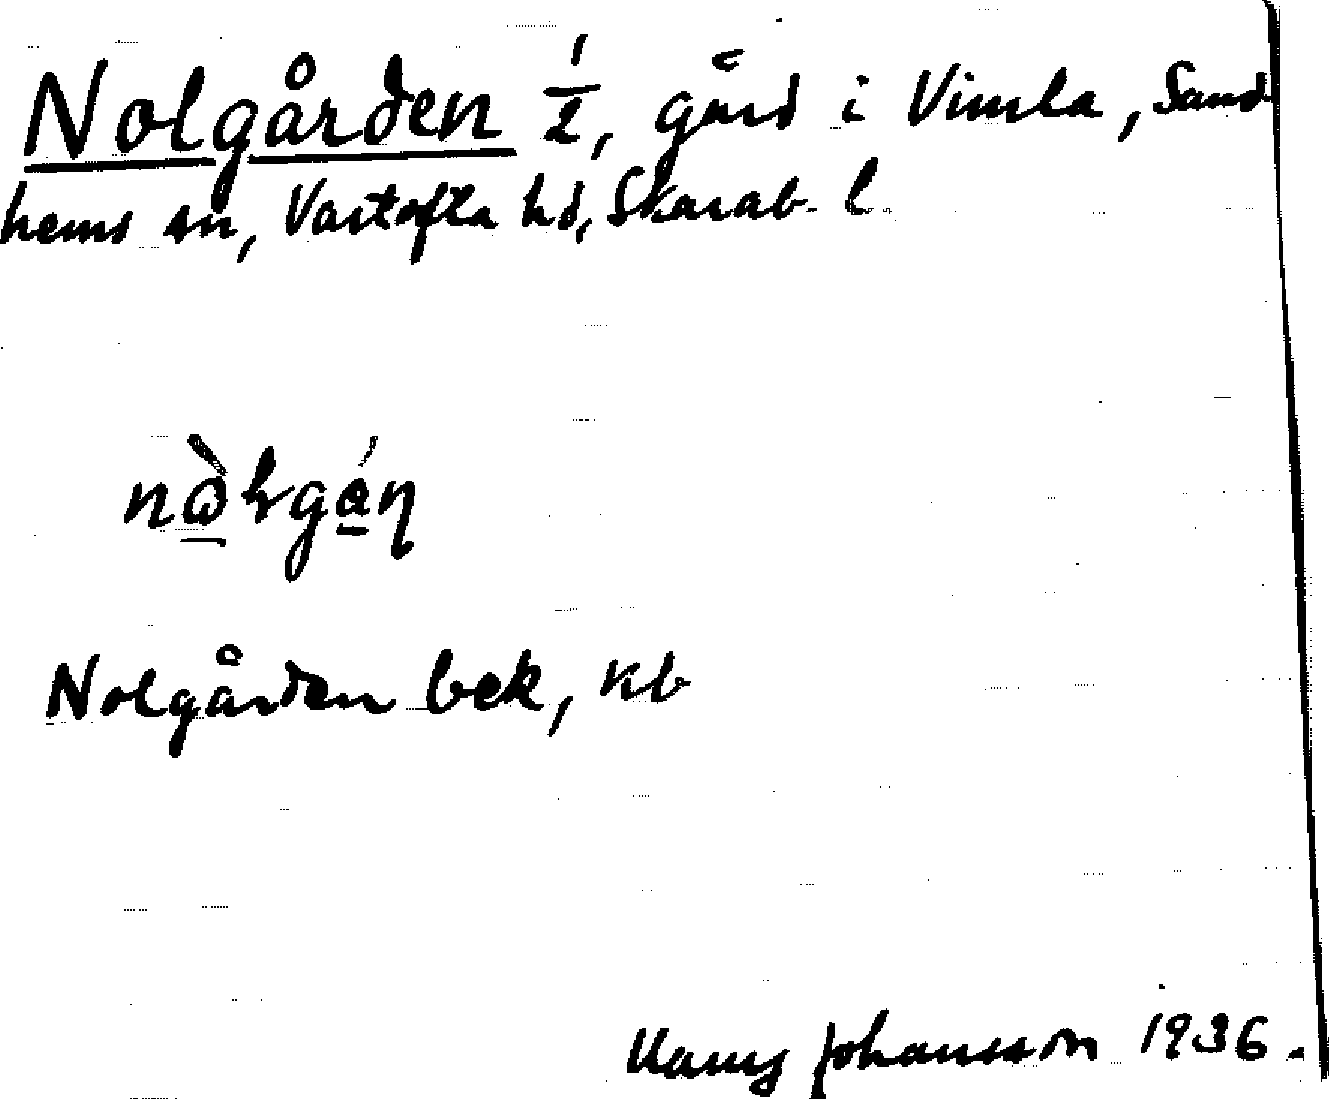 Nolgården 1/2, gård i Vimla, Sand-
hems sn, Vartofta hd, Skarab. l
Nolgården bek, kb
Johansson 1936.